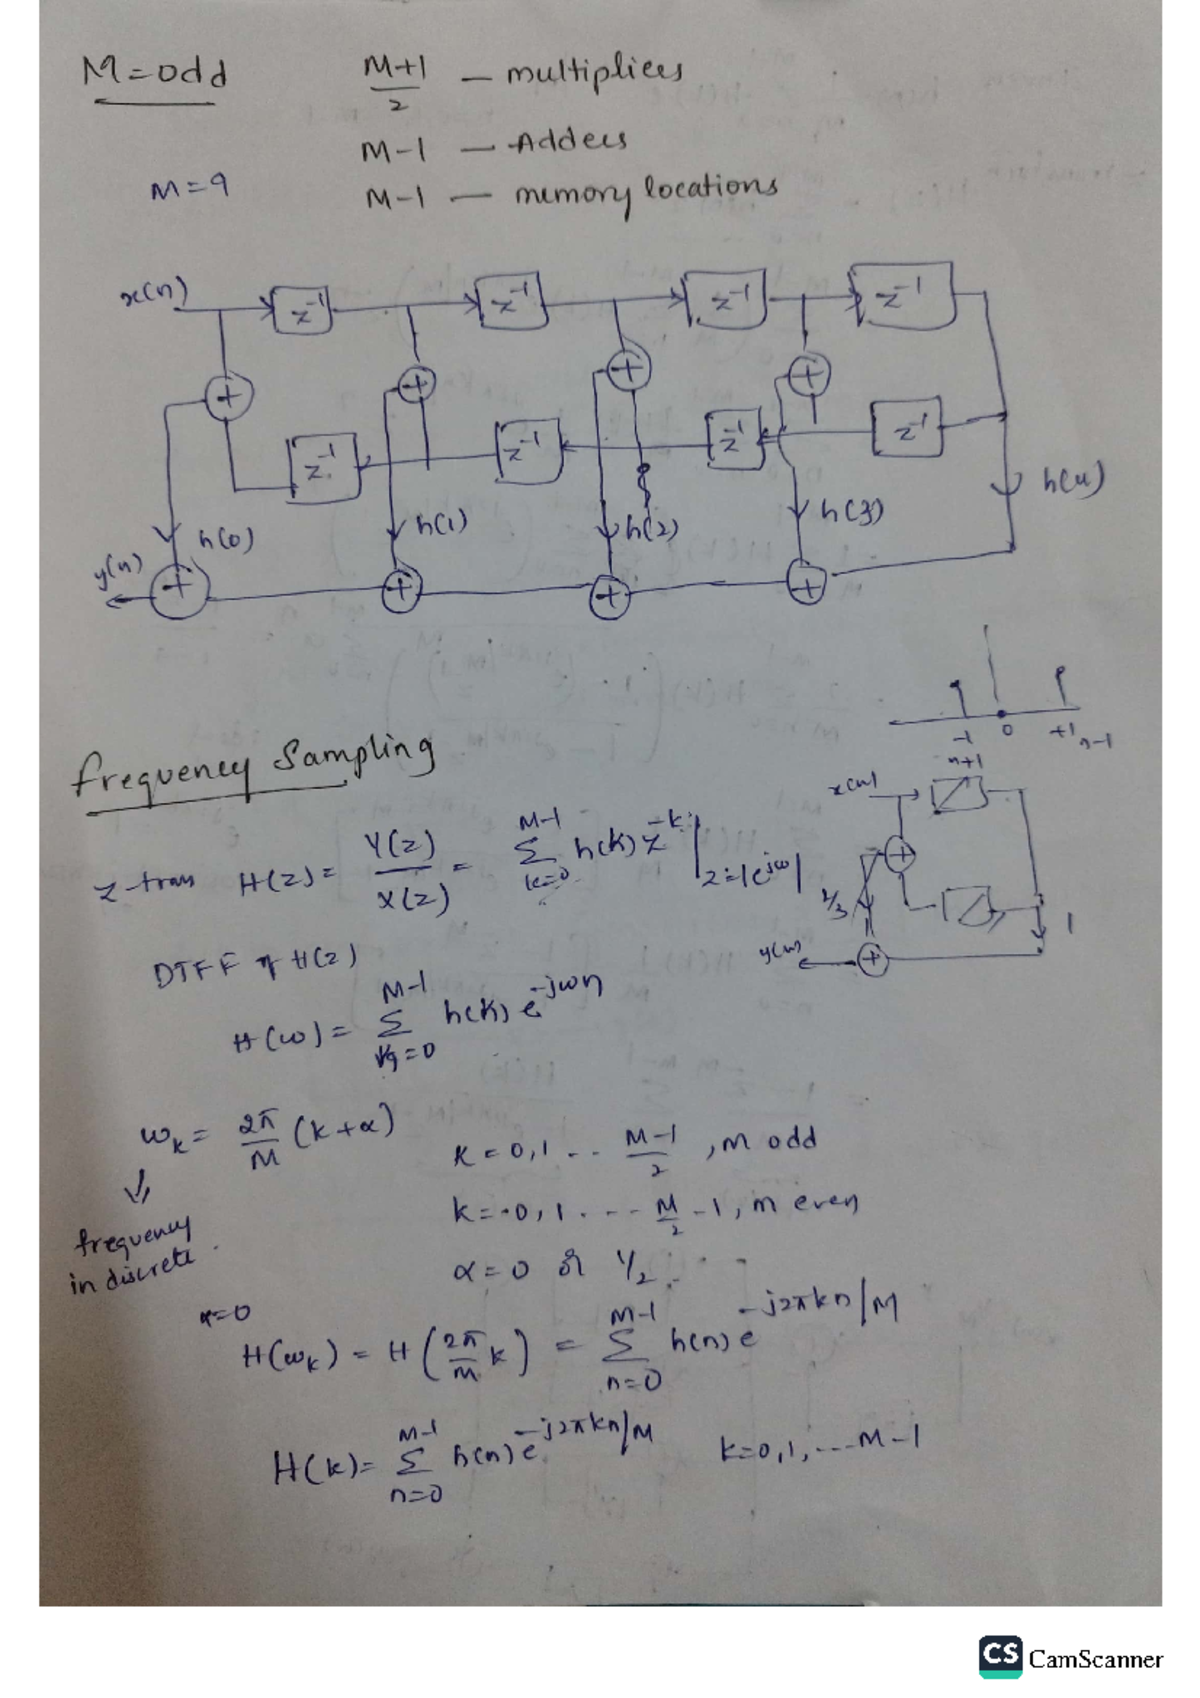 M=odd
M+1/2 — multiplices
M-1 — Adders
M=9
M-1 — memory locations
x(n) z⁻¹ z⁻¹ z⁻¹ z⁻¹
+ + + +
z⁻¹ z⁻¹ z⁻¹ z⁻¹
h(0) h(1) h(2) h(3) h(4)
y(n) + + + +
-1 0 +1 n-1
n+1
frequency Sampling
x(n)
+
z-tran H(z) = Y(z)/X(z) = Σ_{k=0}^{M-1} h(k) z^{-k} |_{z=|e^{jω}|}
1/3
1
y(n) +
DTFF of H(z)
H(ω) = Σ_{k=0}^{M-1} h(k) e^{-jωn}
ω_k = 2π/M (k+α)
k = 0,1 .. M-1/2 , m odd
k = 0,1 . . . . M/2 -1, m even
frequency
in discrete
α=0 or 1/2
α=0
H(ω_k) = H(2π/M k) = Σ_{n=0}^{M-1} h(n) e^{-j2πkn/M}
H(k) = Σ_{n=0}^{M-1} h(n) e^{-j2πkn/M} k=0,1,....M-1
CS CamScanner